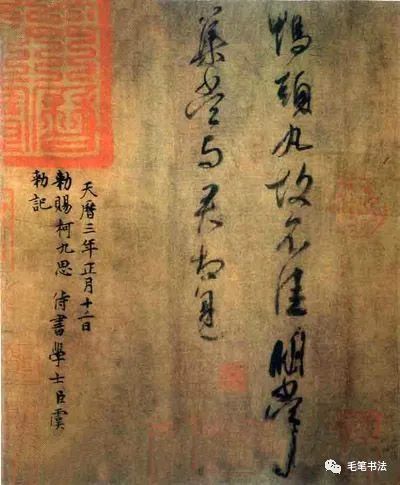 鴨頭丸故不佳明當必
集當与君相見
天曆三年正月十二日
勅賜柯九思 侍書學士臣虞
勅記
毛笔书法